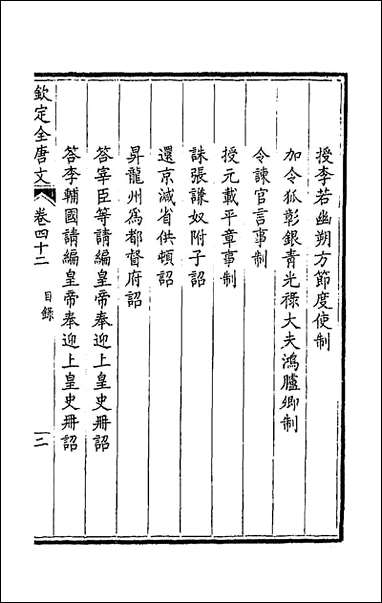 授李若幽朔方節度使制
加令狐彰銀青光祿大夫鴻臚卿制
令諫官言事制
授元載平章事制
誅張謙奴附子詔
還京減省供頓詔
昇龍州為都督府詔
答宰臣等請編皇帝奉迎上皇史冊詔
答李輔國請編皇帝奉迎上皇史冊詔
欽定全唐文 卷四十二 目錄 二